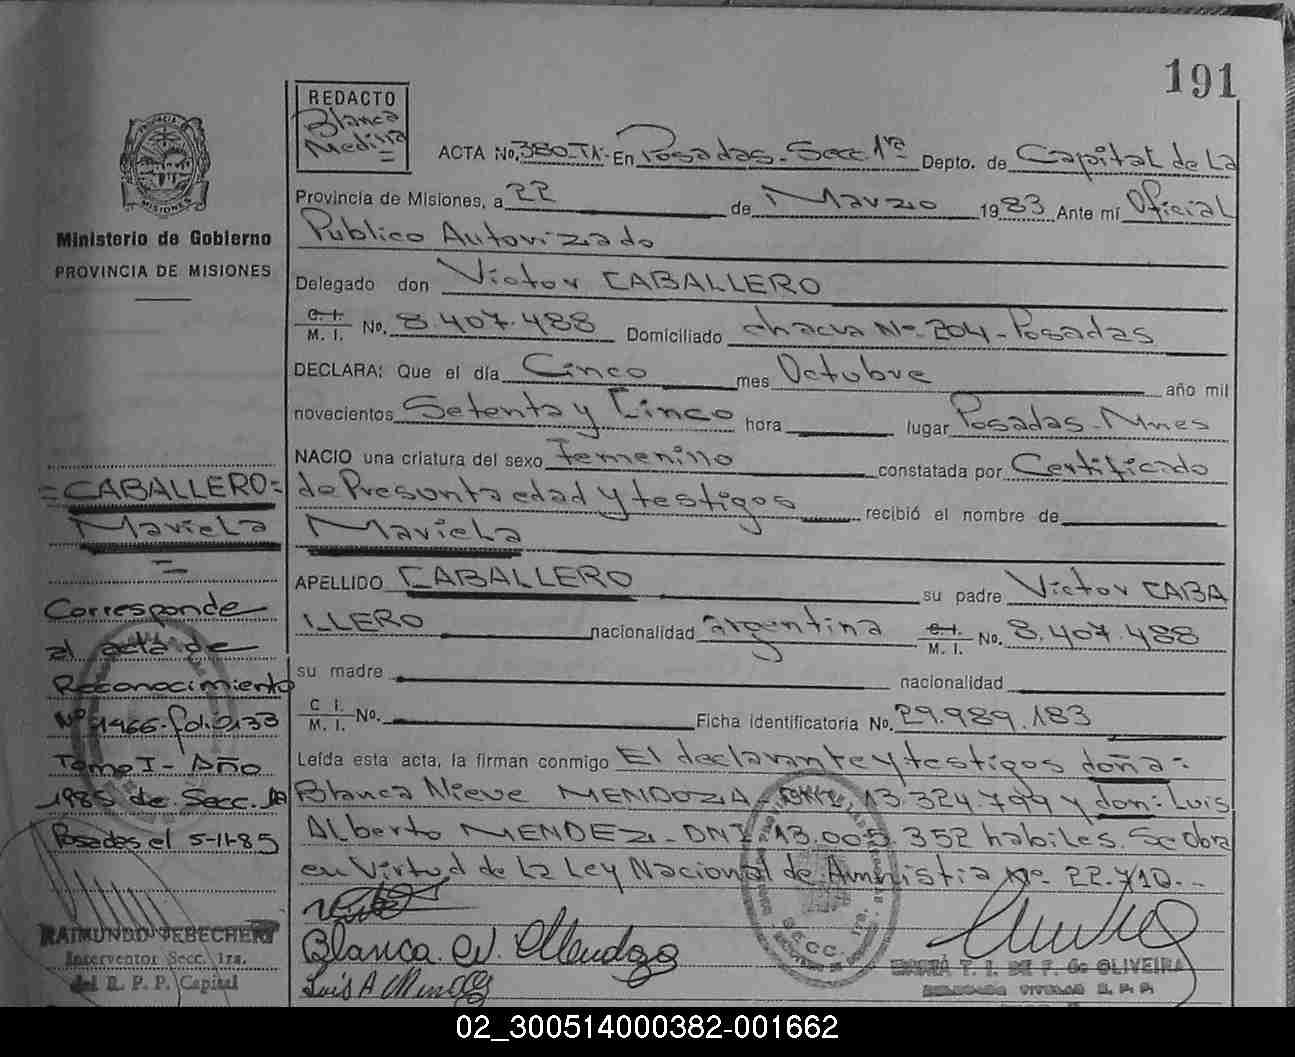 191
REDACTO
Blanca
Medina
ACTA No. 380-TI- En Posadas. Secc. 1ra Depto. de Capital de La
Provincia de Misiones, a 22 de Marzo 1983 Ante mí Oficial
Publico Autorizado
Delegado don Victor CABALLERO
C. I.
M. I. No. 8.407.488 Domiciliado chacra No. 204 - Posadas
DECLARA: Que el día Cinco mes Octubre año mil
novecientos Setenta y Cinco hora lugar Posadas - Mnes
NACIO una criatura del sexo Femenino constatada por Certificado
de Presunta edad y testigos recibió el nombre de
Mariela
APELLIDO CABALLERO su padre Victor CABA
LLERO nacionalidad argentina C. I.
M. I. No. 8.407.488
su madre nacionalidad
C I.
M. I. No. Ficha identificatoria No. 29.989.183
Leída esta acta, la firman conmigo El declarante y testigos doña:
Blanca Nieve MENDOZA DNI. 13.324.799 y don: Luis
Alberto MENDEZ - DNI. 13.005.352 habiles. Se Obra
en Virtud de La Ley Nacional de Amnistia No. 22.710.-
Blanca N. Mendoza
Luis A Mendez
SECC. 1ra.
MARÍA T. I. DE F. de OLIVEIRA
DELEGADA TITULAR R. P. P.
PROVINCIA DE
MISIONES
Ministerio de Gobierno
PROVINCIA DE MISIONES
=CABALLERO=
Mariela
=
Corresponde
al acta de
Reconocimiento
Nº 1466-fol. 0133
Tomo I - Año
1985 de Secc. 1a
Posadas el 5-11-85
RAIMUNDO JEBECHERT
Interventor Secc. 1ra.
del R. P. P. Capital
02_300514000382-001662